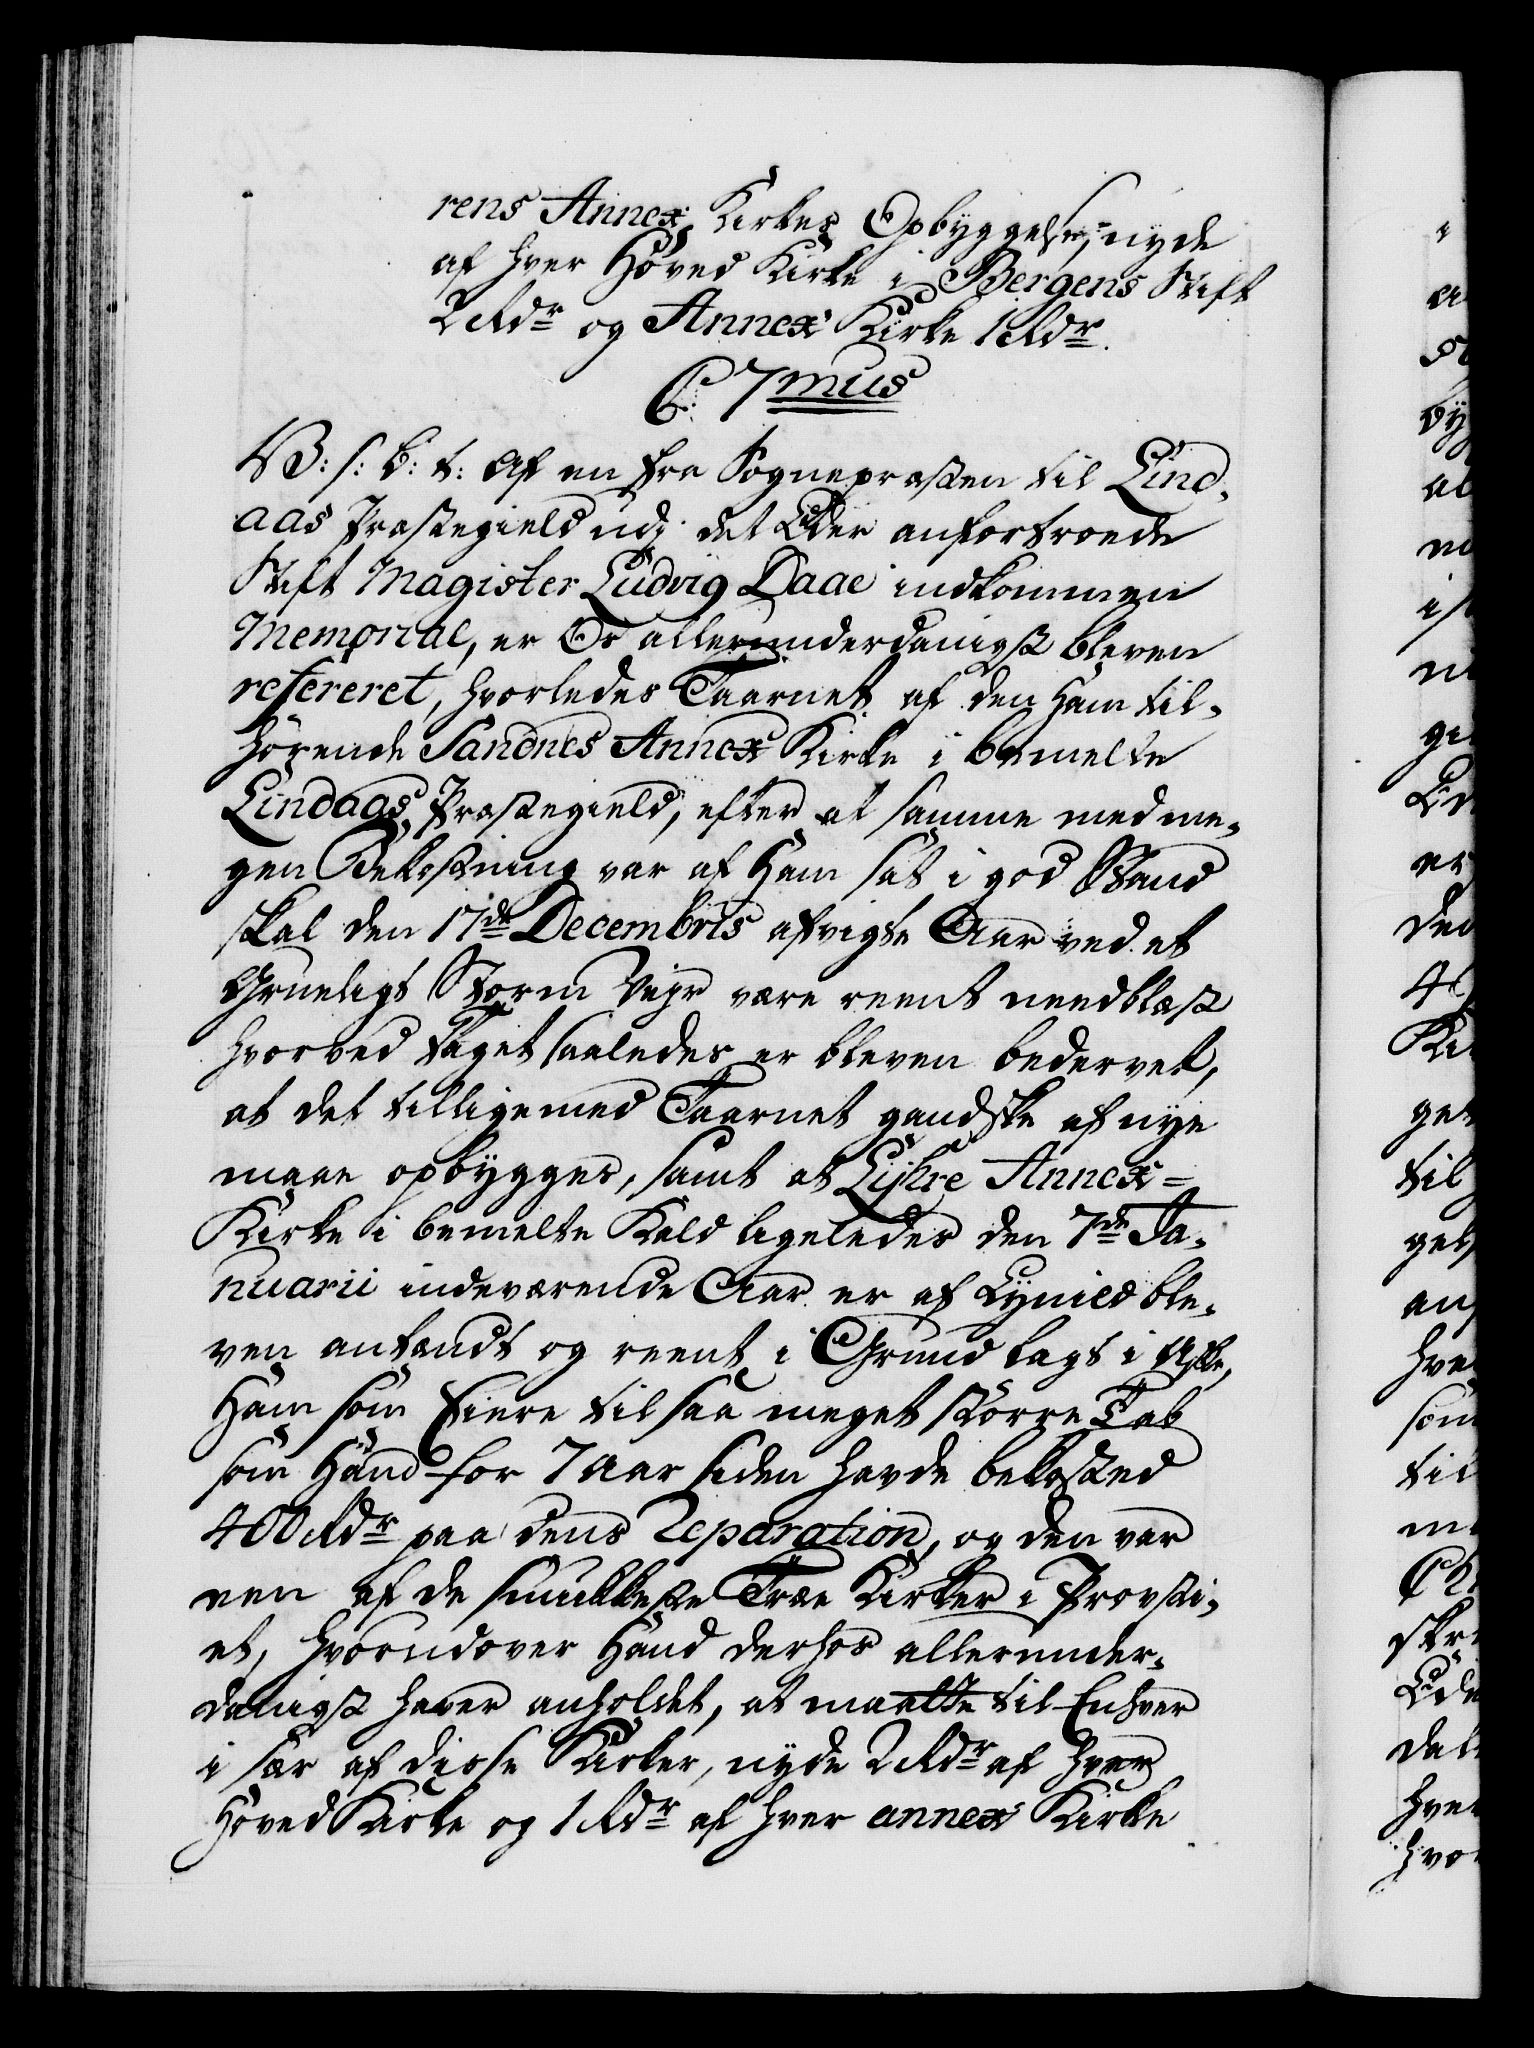 rens Annex Kirkes Opbyggelse, nyde
af hver Hoved Kirke i Bergens Stift
2 Rdr og Annex Kirke 1 Rdr.
C: 7mus
V: s: b: t: Af en fra Sognepræsten til Lind-
aas Præstegield udj det Eder anfortroede
Stift Magister Ludvig Daae indkommen
Memorial, er Os allerunderdanigst bleven
refereret, hvorledes Taarnet af den Ham til-
hørende Sandnes Annex Kirke i bemelte
Lindaas Præstegield, efter at samme med me-
gen Bekostning var af Ham sat i god Stand
skal den 17de Decembris afvigte Aar ved et
Grueligt Storm Vejr være reent needblæst
hvorved Taget saaledes er bleven bedervet,
at det tilligemed Taarnet gandske af nye
maae opbygges, samt at Lÿhre Annex-
Kirke i bemelte Kald ligeledes den 7de Ja-
nuarii indeværende Aar er af Lÿnild ble-
ven antændt og reent i Grund lagt i Aske,
Ham som Eiere til saa meget større Tab
som Hand for 7 Aar siden havde bekosted
400 Rdr paa dens Reparation, og den var
een af de smukkeste Træe Kirker i Provsti-
et, hvorudover Hand derhos allerunder-
danigst haver anholdet, at maatte til Enhver
i sær af disse Kirker, nyde 2 Rdr af hver
Hoved Kirke og 1 Rdr af hver annex Kirke